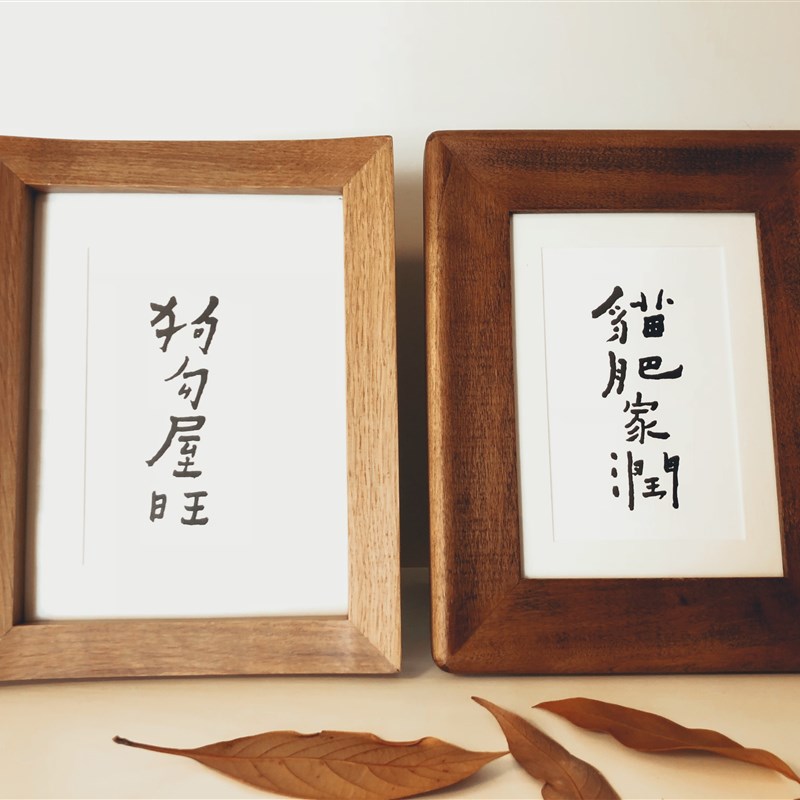 狗勻屋旺
貓肥家潤